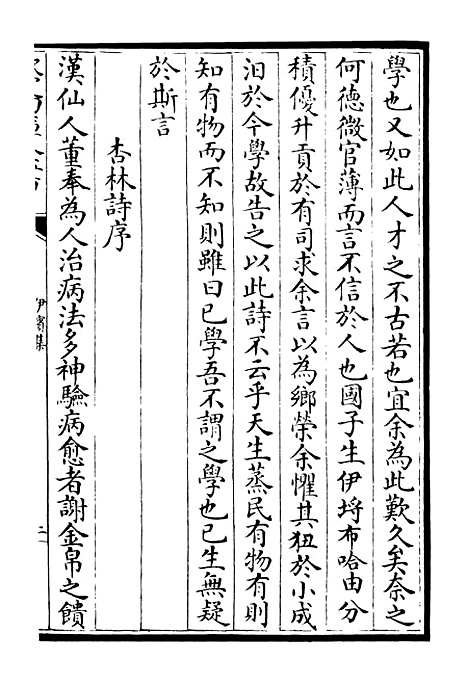 學也又如此人才之不古若也宜余為此歎久矣奈之
何德微官薄而言不信於人也國子生伊埓布哈由分
積優升貢於有司求余言以為鄉榮余懼其狃於小成
汨於今學故告之以此詩不云乎天生蒸民有物有則
知有物而不知則雖曰已學吾不謂之學也已生無疑
於斯言
杏林詩序
漢仙人董奉為人治病法多神驗病愈者謝金帛之饋
伊濱集